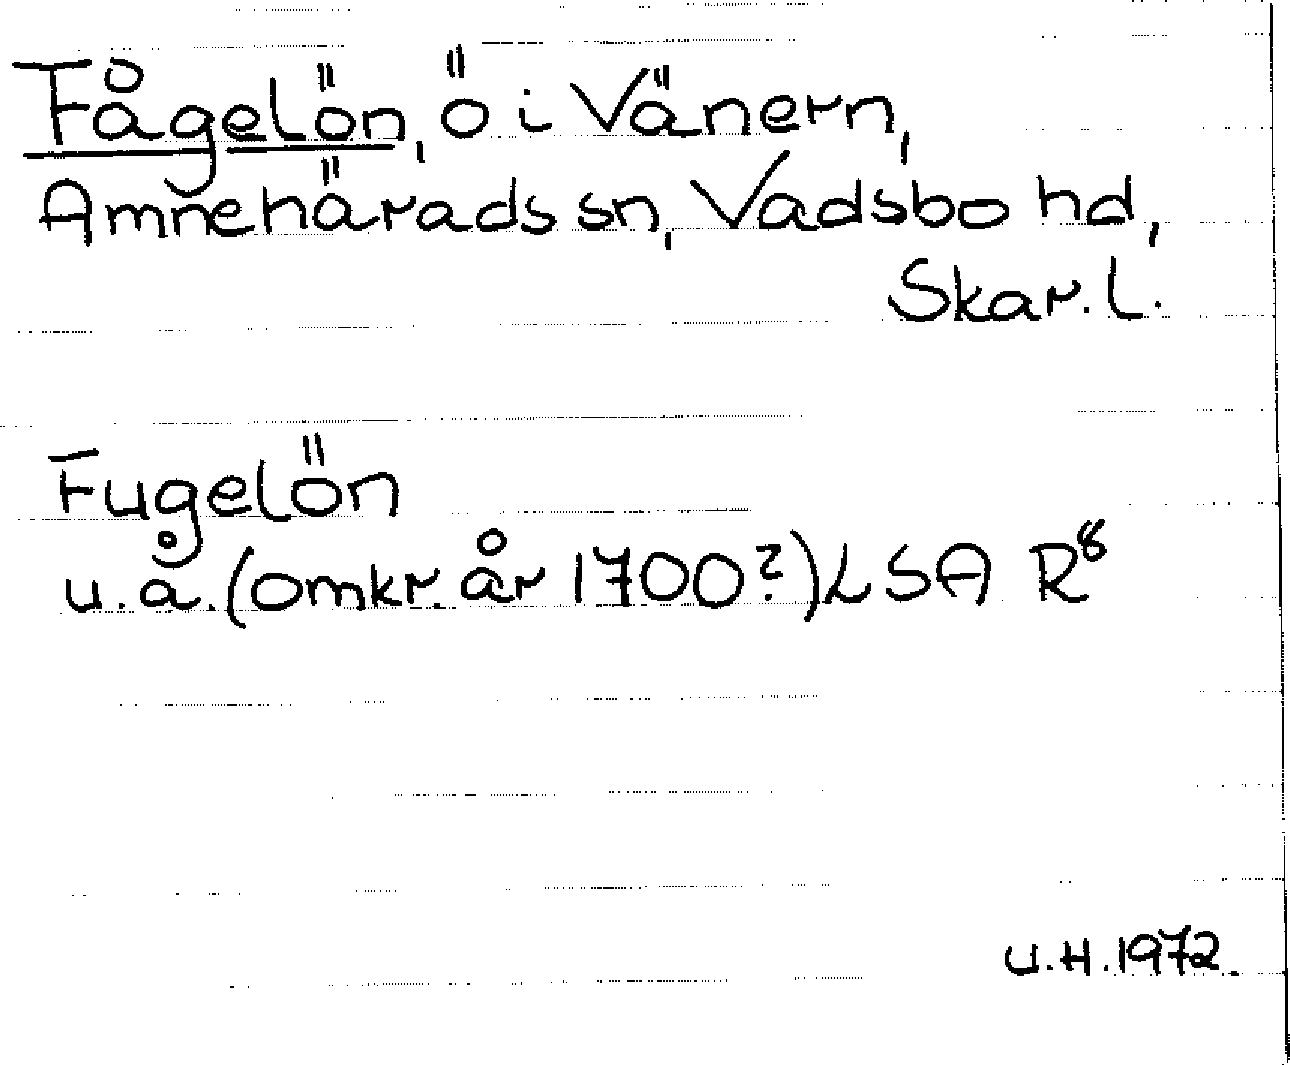 Fågelön, ö i Vänern,
Amnehärads sn, Vadsbo hd,
Skar. l.
Fugelön
u.å. (omkr. år 1700?) LSA R⁸
U.H. 1972.